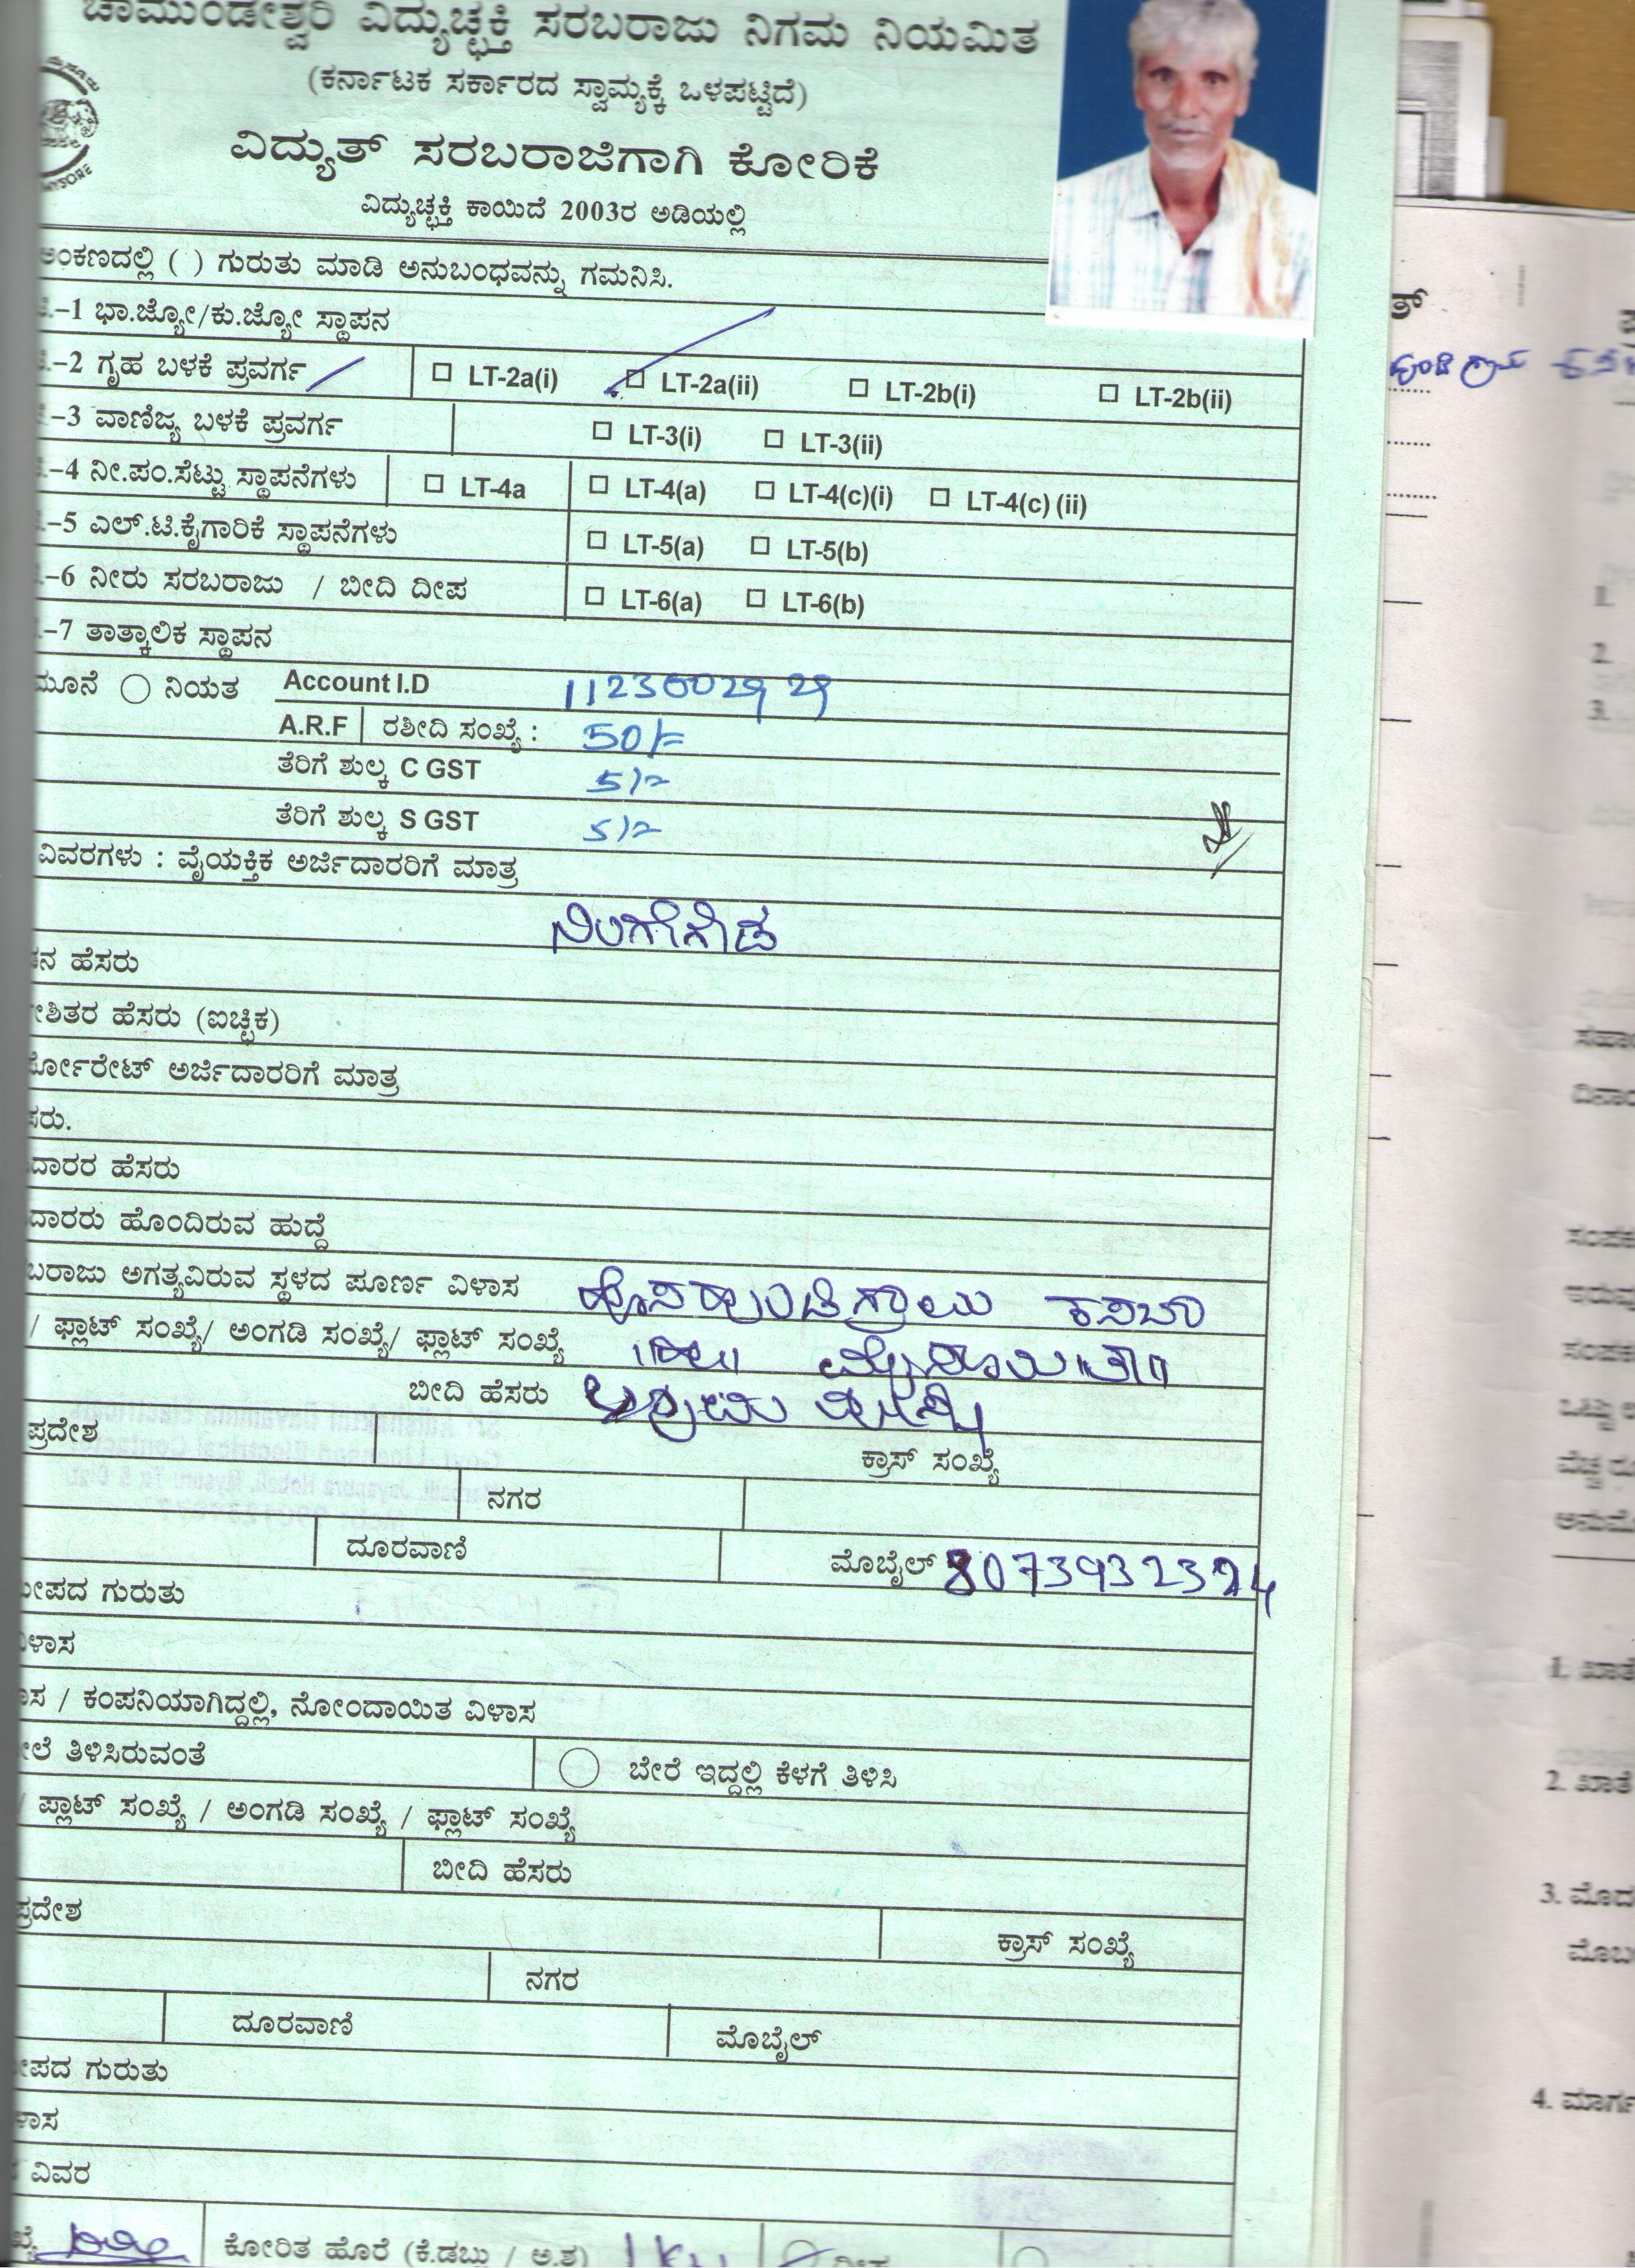 ಚಾಮುಂಡೇಶ್ವರಿ ವಿದ್ಯುಚ್ಛಕ್ತಿ ಸರಬರಾಜು ನಿಗಮ ನಿಯಮಿತ
(ಕರ್ನಾಟಕ ಸರ್ಕಾರದ ಸ್ವಾಮ್ಯಕ್ಕೆ ಒಳಪಟ್ಟಿದೆ)
ವಿದ್ಯುತ್ ಸರಬರಾಜಿಗಾಗಿ ಕೋರಿಕೆ
MYSORE
ವಿದ್ಯುಚ್ಛಕ್ತಿ ಕಾಯಿದೆ 2003ರ ಅಡಿಯಲ್ಲಿ
ಅಂಕಣದಲ್ಲಿ ( ) ಗುರುತು ಮಾಡಿ ಅನುಬಂಧವನ್ನು ಗಮನಿಸಿ.
–1 ಭಾ.ಜ್ಯೋ/ಕು.ಜ್ಯೋ ಸ್ಥಾಪನ
–2 ಗೃಹ ಬಳಕೆ ಪ್ರವರ್ಗ LT-2a(i) LT-2a(ii) LT-2b(i) LT-2b(ii)
–3 ವಾಣಿಜ್ಯ ಬಳಕೆ ಪ್ರವರ್ಗ LT-3(i) LT-3(ii)
–4 ನೀ.ಪಂ.ಸೆಟ್ಟು ಸ್ಥಾಪನೆಗಳು LT-4a LT-4(a) LT-4(c)(i) LT-4(c) (ii)
–5 ಎಲ್.ಟಿ.ಕೈಗಾರಿಕೆ ಸ್ಥಾಪನೆಗಳು LT-5(a) LT-5(b)
–6 ನೀರು ಸರಬರಾಜು / ಬೀದಿ ದೀಪ LT-6(a) LT-6(b)
–7 ತಾತ್ಕಾಲಿಕ ಸ್ಥಾಪನ
ನಿಯತ Account I.D 1123002929
A.R.F ರಶೀದಿ ಸಂಖ್ಯೆ : 50/=
ತೆರಿಗೆ ಶುಲ್ಕ C GST 5/=
ತೆರಿಗೆ ಶುಲ್ಕ S GST 5/=
ವಿವರಗಳು : ವೈಯಕ್ತಿಕ ಅರ್ಜಿದಾರರಿಗೆ ಮಾತ್ರ
ನಿಂಗೇಗೌಡ
ಹೆಸರು
ಹೆಸರು (ಐಚ್ಛಿಕ)
ಅರ್ಜಿದಾರರಿಗೆ ಮಾತ್ರ
ದಾರರ ಹೆಸರು
ದಾರರು ಹೊಂದಿರುವ ಹುದ್ದೆ
ಬರಾಜು ಅಗತ್ಯವಿರುವ ಸ್ಥಳದ ಪೂರ್ಣ ವಿಳಾಸ ಹೊಸಹುಂಡಿಗ್ರಾಮ ಕಸಬಾ
/ ಫ್ಲಾಟ್ ಸಂಖ್ಯೆ/ ಅಂಗಡಿ ಸಂಖ್ಯೆ/ ಫ್ಲಾಟ್ ಸಂಖ್ಯೆ
ಬೀದಿ ಹೆಸರು
ಪ್ರದೇಶ ಕ್ರಾಸ್ ಸಂಖ್ಯೆ
ನಗರ
ದೂರವಾಣಿ ಮೊಬೈಲ್ 8073932324
ಗುರುತು
/ ಕಂಪನಿಯಾಗಿದ್ದಲ್ಲಿ, ನೋಂದಾಯಿತ ವಿಳಾಸ
ತಿಳಿಸಿರುವಂತೆ ಬೇರೆ ಇದ್ದಲ್ಲಿ ಕೆಳಗೆ ತಿಳಿಸಿ
/ ಪ್ಲಾಟ್ ಸಂಖ್ಯೆ / ಅಂಗಡಿ ಸಂಖ್ಯೆ / ಫ್ಲಾಟ್ ಸಂಖ್ಯೆ
ಬೀದಿ ಹೆಸರು
ಪ್ರದೇಶ ಕ್ರಾಸ್ ಸಂಖ್ಯೆ
ನಗರ
ದೂರವಾಣಿ ಮೊಬೈಲ್
ಗುರುತು
ವಿವರ
ಕೋರಿತ ಹೊರೆ (ಕೆ.ಡಬ್ಲು / ಅ.ಶ)
1.
2.
3.
1. ಖಾತೆ
2. ಖಾತೆ
3. ಮೊದ
ಮೊಬ
4. ಮಾರ್ಗ